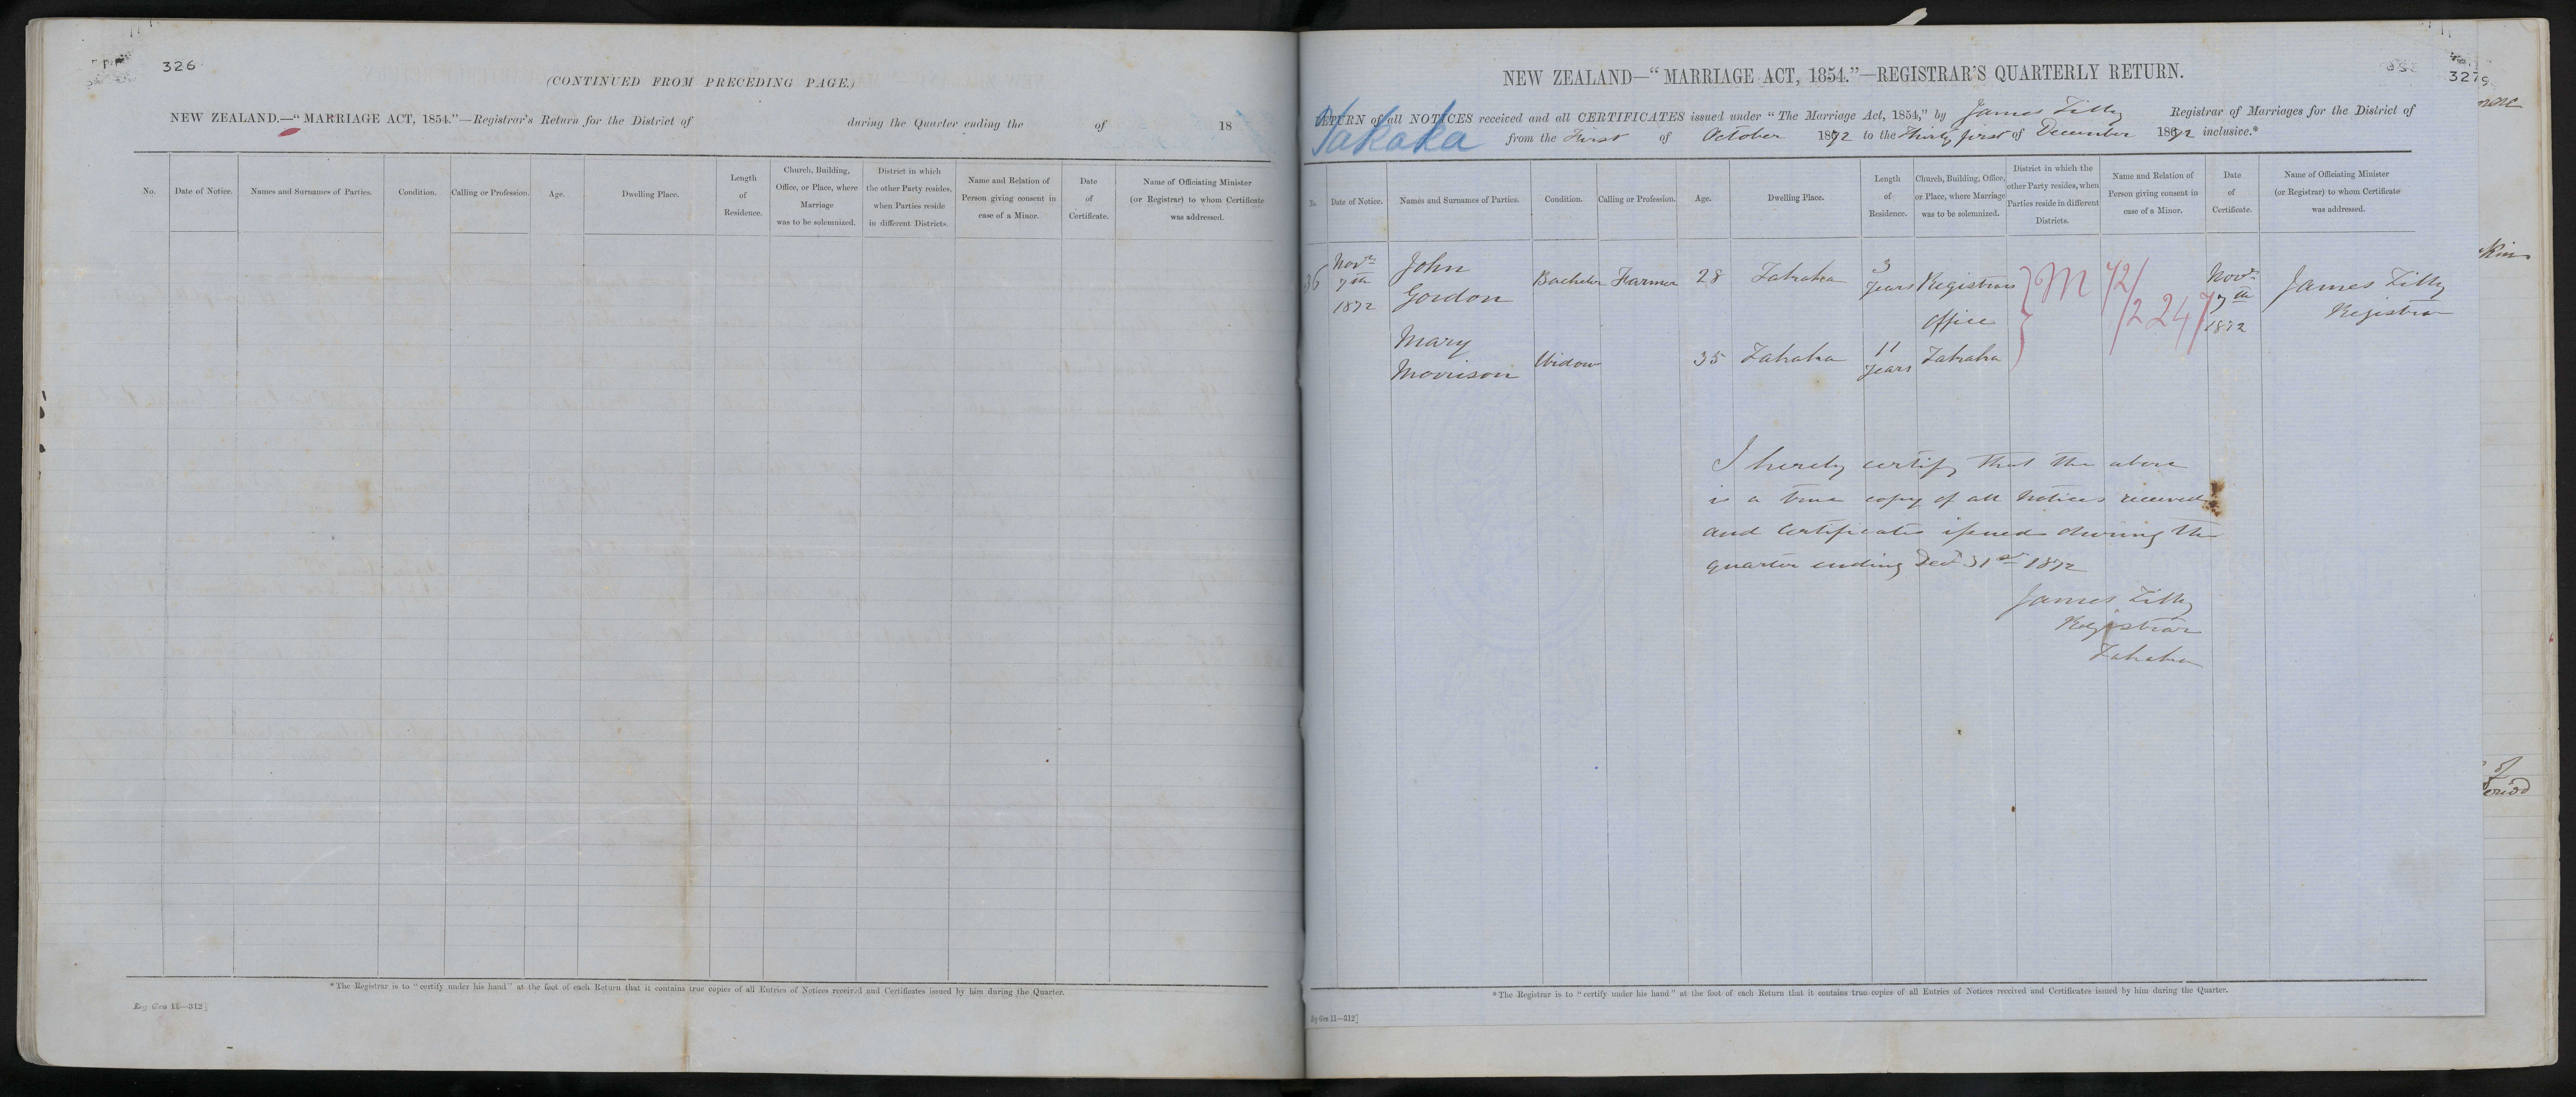 326
(CONTINUED FROM PRECEDING PAGE.)
NEW ZEALAND.—"MARRIAGE ACT, 1854."—Registrar's Return for the District of during the Quarter ending the of 18
No.
Date of Notice.
Names and Surnames of Parties.
Condition.
Calling or Profession.
Age.
Dwelling Place.
Length
of
Residence.
Church, Building,
Office, or Place, where
Marriage
was to be solemnized.
District in which
the other Party resides,
when Parties reside
in different Districts.
Name and Relation of
Person giving consent in
case of a Minor.
Date
of
Certificate.
Name of Officiating Minister
(or Registrar) to whom Certificate
was addressed.
*The Registrar is to "certify under his hand" at the foot of each Return that it contains true copies of all Entries of Notices received and Certificates issued by him during the Quarter.
Rg Gen 11—312]
327
NEW ZEALAND—"MARRIAGE ACT, 1854."—REGISTRAR'S QUARTERLY RETURN.
RETURN of all NOTICES received and all CERTIFICATES issued under "The Marriage Act, 1854," by James Tilly Registrar of Marriages for the District of
Takaka from the First of October 1872 to the Thirty first of December 1872 inclusive.*
No.
Date of Notice.
Names and Surnames of Parties.
Condition.
Calling or Profession.
Age.
Dwelling Place.
Length
of
Residence.
Church, Building, Office,
or Place, where Marriage
was to be solemnized.
District in which the
other Party resides, when
Parties reside in different
Districts.
Name and Relation of
Person giving consent in
case of a Minor.
Date
of
Certificate.
Name of Officiating Minister
(or Registrar) to whom Certificate
was addressed.
36
Novr
7th
1872
John
Gordon
Bachelor
Farmer
28
Takaka
3
Years
Registrars
Office
Takaka
M 72/
2247
Novr
7th
1872
James Tilly
Registrar
Mary
Morrison
Widow
35
Takaka
11
Years
I hereby certify that the above
is a true copy of all Notices received
and Certificates issued during the
quarter ending Decr 31st 1872
James Tilly
Registrar
Takaka
*The Registrar is to "certify under his hand" at the foot of each Return that it contains true copies of all Entries of Notices received and Certificates issued by him during the Quarter.
Rg Gen 11—312]